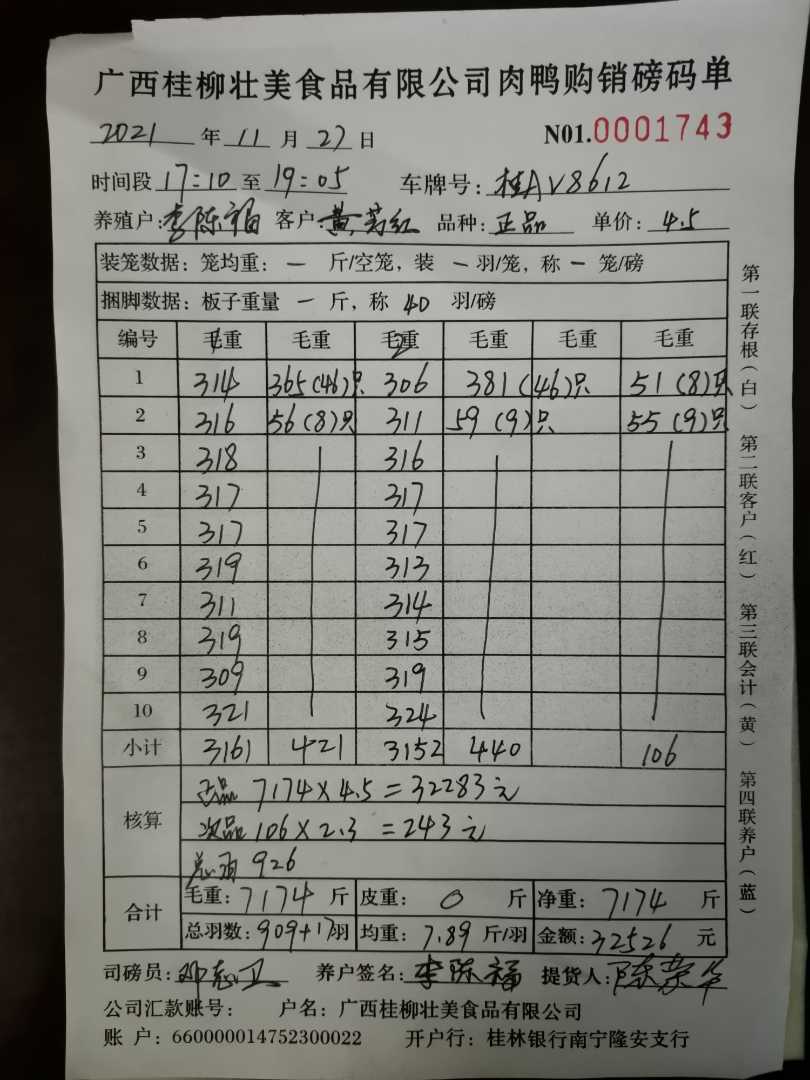 广西桂柳壮美食品有限公司肉鸭购销磅码单
2021 年 11 月 27 日 N01.0001743
时间段 17:10 至 19:05 车牌号: 桂AV8612
养殖户: 李陈福 客户: 黄芳红 品种: 正品 单价: 4.5
装笼数据: 笼均重: 一 斤/空笼, 装 一 羽/笼, 称 一 笼/磅
捆脚数据: 板子重量 一 斤, 称 40 羽/磅
编号 毛重 1 毛重 毛重 2 毛重 毛重 毛重
1 314 365(46)只 306 381(46)只 51(8)只
2 316 56(8)只 311 59(9)只 55(9)只
3 318 316
4 317 317
5 317 317
6 319 313
7 311 314
8 319 315
9 309 319
10 321 324
小计 3161 421 3152 440 106
核算 正品 7174×4.5=32283元
次品 106×2.3=243元
总羽 926
合计 毛重: 7174 斤 皮重: 0 斤 净重: 7174 斤
总羽数: 909+17羽 均重: 7.89 斤/羽 金额: 32526 元
司磅员: 邓 卫 养户签名: 李陈福 提货人: 陈荣华
公司汇款账号: 户名: 广西桂柳壮美食品有限公司
账 户: 660000014752300022 开户行: 桂林银行南宁隆安支行
第一联存根(白) 第二联客户(红) 第三联会计(黄) 第四联养户(蓝)